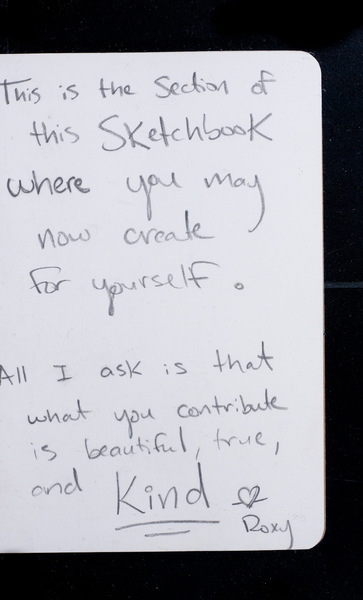 This is the Section of
this Sketchbook
where you may
now create
for yourself.
All I ask is that
what you contribute
is beautiful, true,
and Kind ♡
Roxy